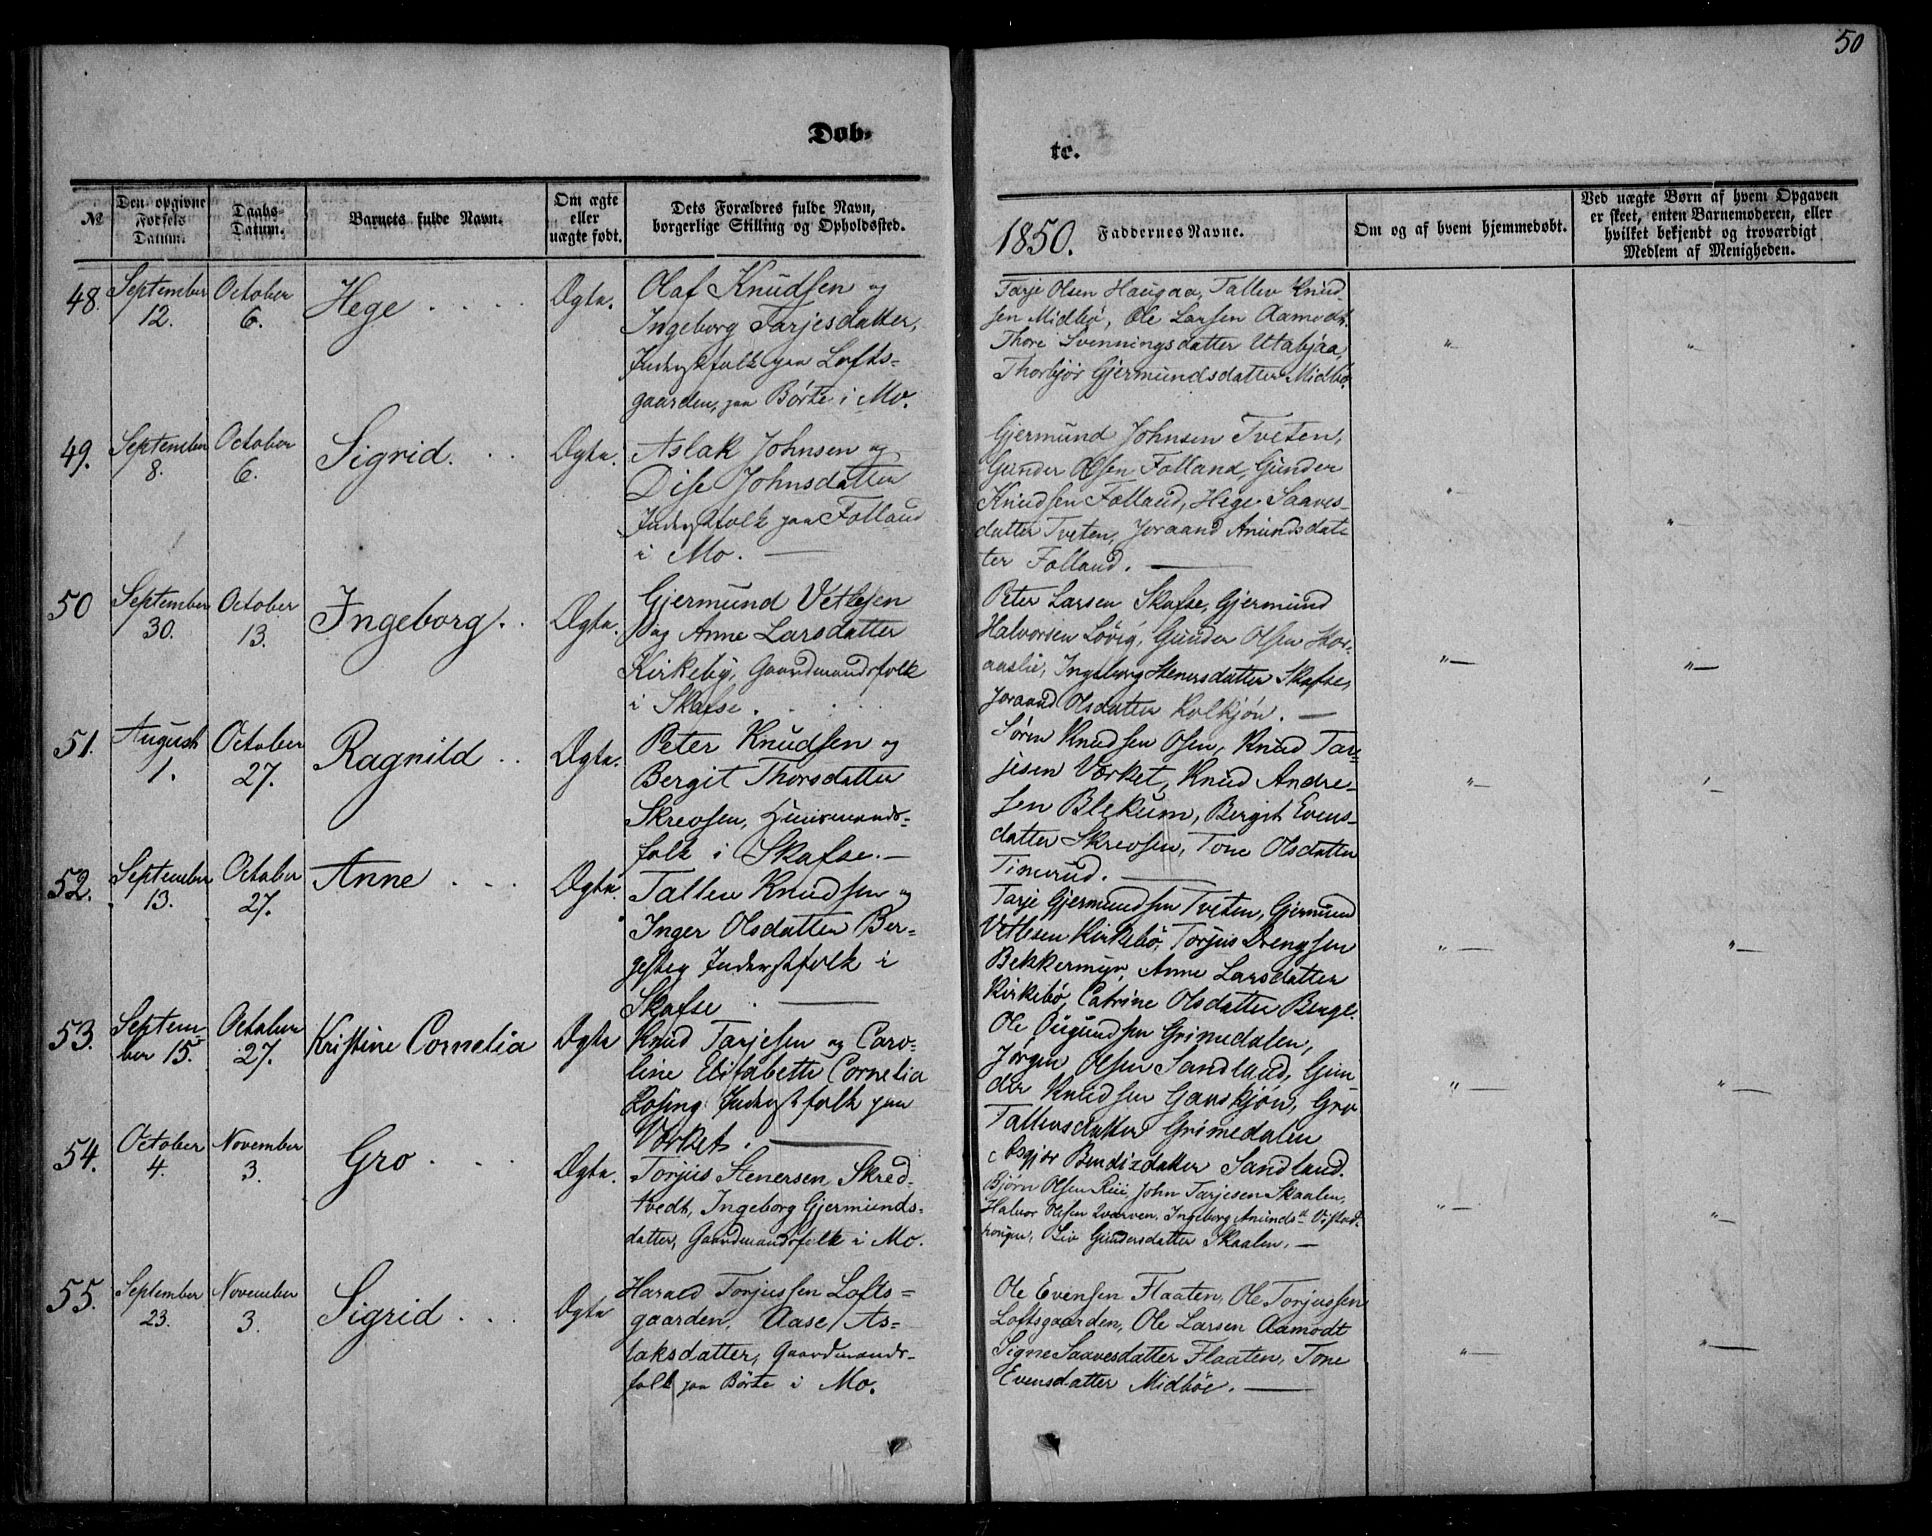 50
Døb-
te.
№
Den opgivne Fødsels Datum.
Daabs-Datum.
Barnets fulde Navn.
Om ægte eller uægte født.
Dets Forældres fulde Navn, borgerlige Stilling og Opholdssted.
1850. Faddernes Navne.
Om og af hvem hjemmedøbt.
Ved uægte Børn af hvem Opgaven er skeet, enten Barnemoderen, eller hvilket bekjendt og troværdigt Medlem af Menigheden.
48.
September 12.
October 6.
Hege
Ægte.
Olaf Knudsen og
Ingeborg Tarjesdatter,
Inderstfolk paa Lofts-
gaarden, paa Børte i Mo.
Tarje Olsen Haugaa, Tallev Knud-
sen Midbö, Ole Larsen Aamodt.
Thore Svenningsdatter Utabjaa,
Thorbjör Gjermundsdatter Midbö.
"—
"—
49.
September 8.
October 6.
Sigrid.
Ægte.
Aslak Johnsen og
Dise Johnsdatter
Inderstfolk paa Folland
i Mo. —
Gjermund Johnsen Tveten,
Gunder Olsen Folland, Gunder
Knudsen Folland, Hege Saaves-
datter Tveten, Joraand Anundsdat-
ter Folland. —
"—
"—
50
September 30.
October 13.
Ingeborg.
Ægte.
Gjermund Vetlesen
og Anne Larsdatter
Kirkebø, Gaardmandsfolk
i Skafse.
Peter Larsen Skafse, Gjermund
Halvorsen Lövig, Gunder Olsen
Ingeborg Stenersdatter Skafse,
Joraand Olsdatter Kolkjön. —
"—
"—
51.
August 1.
October 27.
Ragnild
Ægte.
Peter Knudsen og
Bergit Thorsdatter
Skreosen, Huusmands-
folk i Skafse. —
Sören Knudsen Osen, Knud Tar-
jesen Værket, Knud Andre-
sen Blekum, Bergit Evens-
datter Skreosen, Tone Olsdatter
Timrud. —
"—
"—
52.
September 13.
October 27.
Anne
Ægte.
Tallev Knudsen og
Inger Olsdatter Ber-
gesteg Inderstfolk i
Skafse —
Tarje Gjermundsen Tveten, Gjermund
Vetlesen Kirkebö, Torjus Drengsen
Bekkermyr, Anne Larsdatter
Kirkebö, Catrine Olsdatter Berge.
"—
"—
53.
Septem-
ber 15.
October 27.
Kristine Cornelia
Ægte
Knud Tarjesen og Caro-
line Elisabette Cornelia
Inderstfolk paa
Værket. —
Ole Ougundsen Grimedalen,
Jörgen Olsen Sandland, Gun-
der Knudsen Ganskjön, Gro
Tallevsdatter Grimedalen
Asgjör Bendixdatter Sandland.
"—
"—
54.
October 4.
November 3.
Gro
Ægte.
Torjus Stenersen Skred-
tvedt, Ingeborg Gjermunds-
datter, Gaardmandsfolk i Mo.
Bjørn Olsen Rui, John Tarjesen Skaalen,
Halvor Olsen Qvarven, Ingeborg Anundsd.
Liv Gundersdatter Skaalen. —
"—
"—
55.
September 23.
November 3.
Sigrid
Ægte
Harald Torjussen Lofts-
gaarden, Aase As-
laksdatter, Gaardmands-
folk paa Börte i Mo.
Ole Evensen Flaaten, Ole Torjussen
Loftsgaarden, Ole Larsen Aamodt
Signe Saavesdatter Flaaten, Tone
Evensdatter Midböe. —
"—
"—